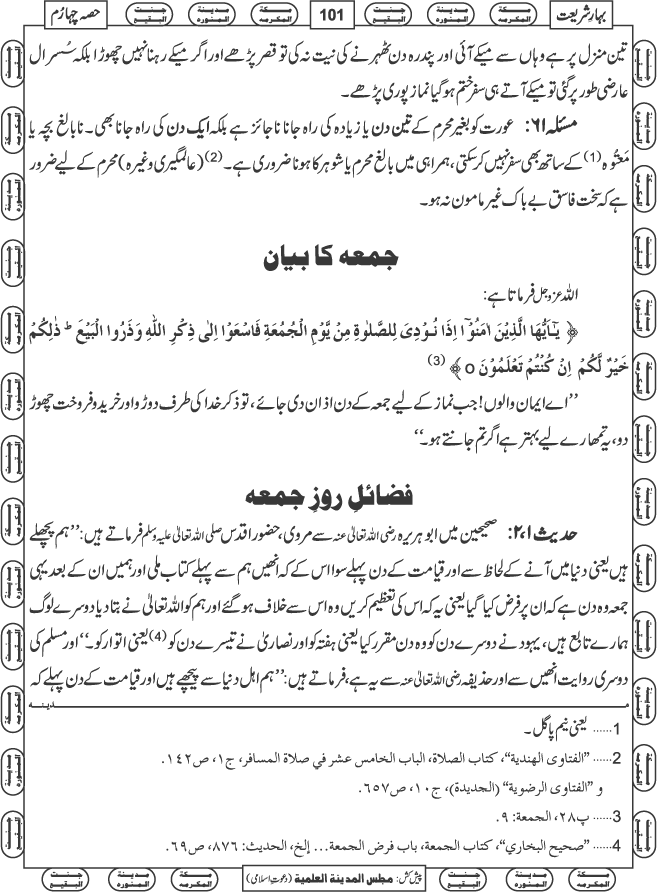 بہارِ شریعت
جنت البقیع
مدینۃ المنورہ
مکۃ المکرمہ
101
مکۃ المکرمہ
مدینۃ المنورہ
جنت البقیع
حصہ چہارم
تین منزل پر ہے وہاں سے میکے آئی اور پندرہ دن ٹھہرنے کی نیت نہ کی تو قصر پڑھے اور اگر میکے رہنا نہیں چھوڑا بلکہ سُسرال
عارضی طور پر گئی تو میکے آتے ہی سفر ختم ہوگیا نماز پوری پڑھے۔
مسئلہ ۶۱: عورت کو بغیر محرم کے تین دن یا زیادہ کی راہ جانا ناجائز ہے بلکہ ایک دن کی راہ جانا بھی۔ نابالغ بچہ یا
مَعتُوہ (1) کے ساتھ بھی سفر نہیں کرسکتی، ہمراہی میں بالغ محرم یا شوہر کا ہونا ضروری ہے۔ (2) (عالمگیری وغیرہ) محرم کے لیے ضرور
ہے کہ سخت فاسق بے باک غیر مامون نہ ہو۔
جمعہ کا بیان
اللہ عزوجل فرماتا ہے:
﴿ يٰۤاَيُّهَا الَّذِيْنَ اٰمَنُوْۤا اِذَا نُوْدِيَ لِلصَّلٰوةِ مِنْ يَّوْمِ الْجُمُعَةِ فَاسْعَوْا اِلٰى ذِكْرِ اللّٰهِ وَذَرُوا الْبَيْعَ ؕ ذٰلِكُمْ
خَيْرٌ لَّكُمْ اِنْ كُنْتُمْ تَعْلَمُوْنَ ٥ ﴾ (3)
’’اے ایمان والوں! جب نماز کے لیے جمعہ کے دن اذان دی جائے، تو ذکر خدا کی طرف دوڑو اور خرید و فروخت چھوڑ
دو، یہ تمھارے لیے بہتر ہے اگر تم جانتے ہو۔‘‘
فضائلِ روزِ جمعہ
حدیث ۲،۱: صحیحین میں ابو ہریرہ رضی اللہ تعالیٰ عنہ سے مروی، حضور اقدس صلی اللہ تعالیٰ علیہ وسلم فرماتے ہیں: ’’ہم پچھلے
ہیں یعنی دنیا میں آنے کے لحاظ سے اور قیامت کے دن پہلے سوا اس کے کہ انھیں ہم سے پہلے کتاب ملی اور ہمیں ان کے بعد یہی
جمعہ وہ دن ہے کہ ان پر فرض کیا گیا یعنی یہ کہ اس کی تعظیم کریں وہ اس سے خلاف ہوگئے اور ہم کو اللہ تعالیٰ نے بتا دیا دوسرے لوگ
ہمارے تابع ہیں، یہود نے دوسرے دن کو وہ دن مقرر کیا یعنی ہفتہ کو اور نصاریٰ نے تیسرے دن کو (4) یعنی اتوار کو۔‘‘ اور مسلم کی
دوسری روایت انھیں سے اور حذیفہ رضی اللہ تعالیٰ عنہ سے یہ ہے، فرماتے ہیں: ’’ہم اہل دنیا سے پیچھے ہیں اور قیامت کے دن پہلے کہ
مدینہ
1 ...... یعنی نیم پاگل۔
2 ...... "الفتاوى الهندية"، كتاب الصلاة، الباب الخامس عشر في صلاة المسافر، ج١، ص١٤٢.
و "الفتاوى الرضوية" (الجديدة)، ج١٠، ص٦٥٧.
3 ...... پ۲۸، الجمعة: ٩.
4 ...... "صحيح البخاري"، كتاب الجمعة، باب فرض الجمعة... إلخ، الحديث: ٨٧٦، ص٦٩.
مکۃ المکرمہ
مدینۃ المنورہ
جنت البقیع
پیش کش: مجلس المدینۃ العلمیۃ (دعوتِ اسلامی)
مکۃ المکرمہ
مدینۃ المنورہ
جنت البقیع